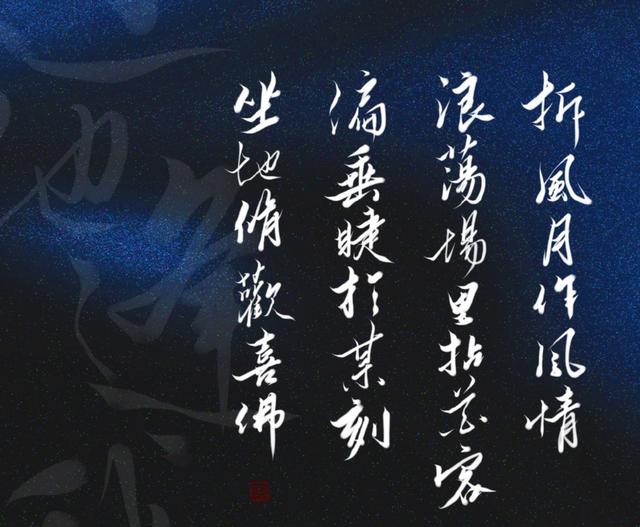 拆風月作風情
浪蕩場里拈花客
偏垂睫於某刻
坐地脩歡喜佛